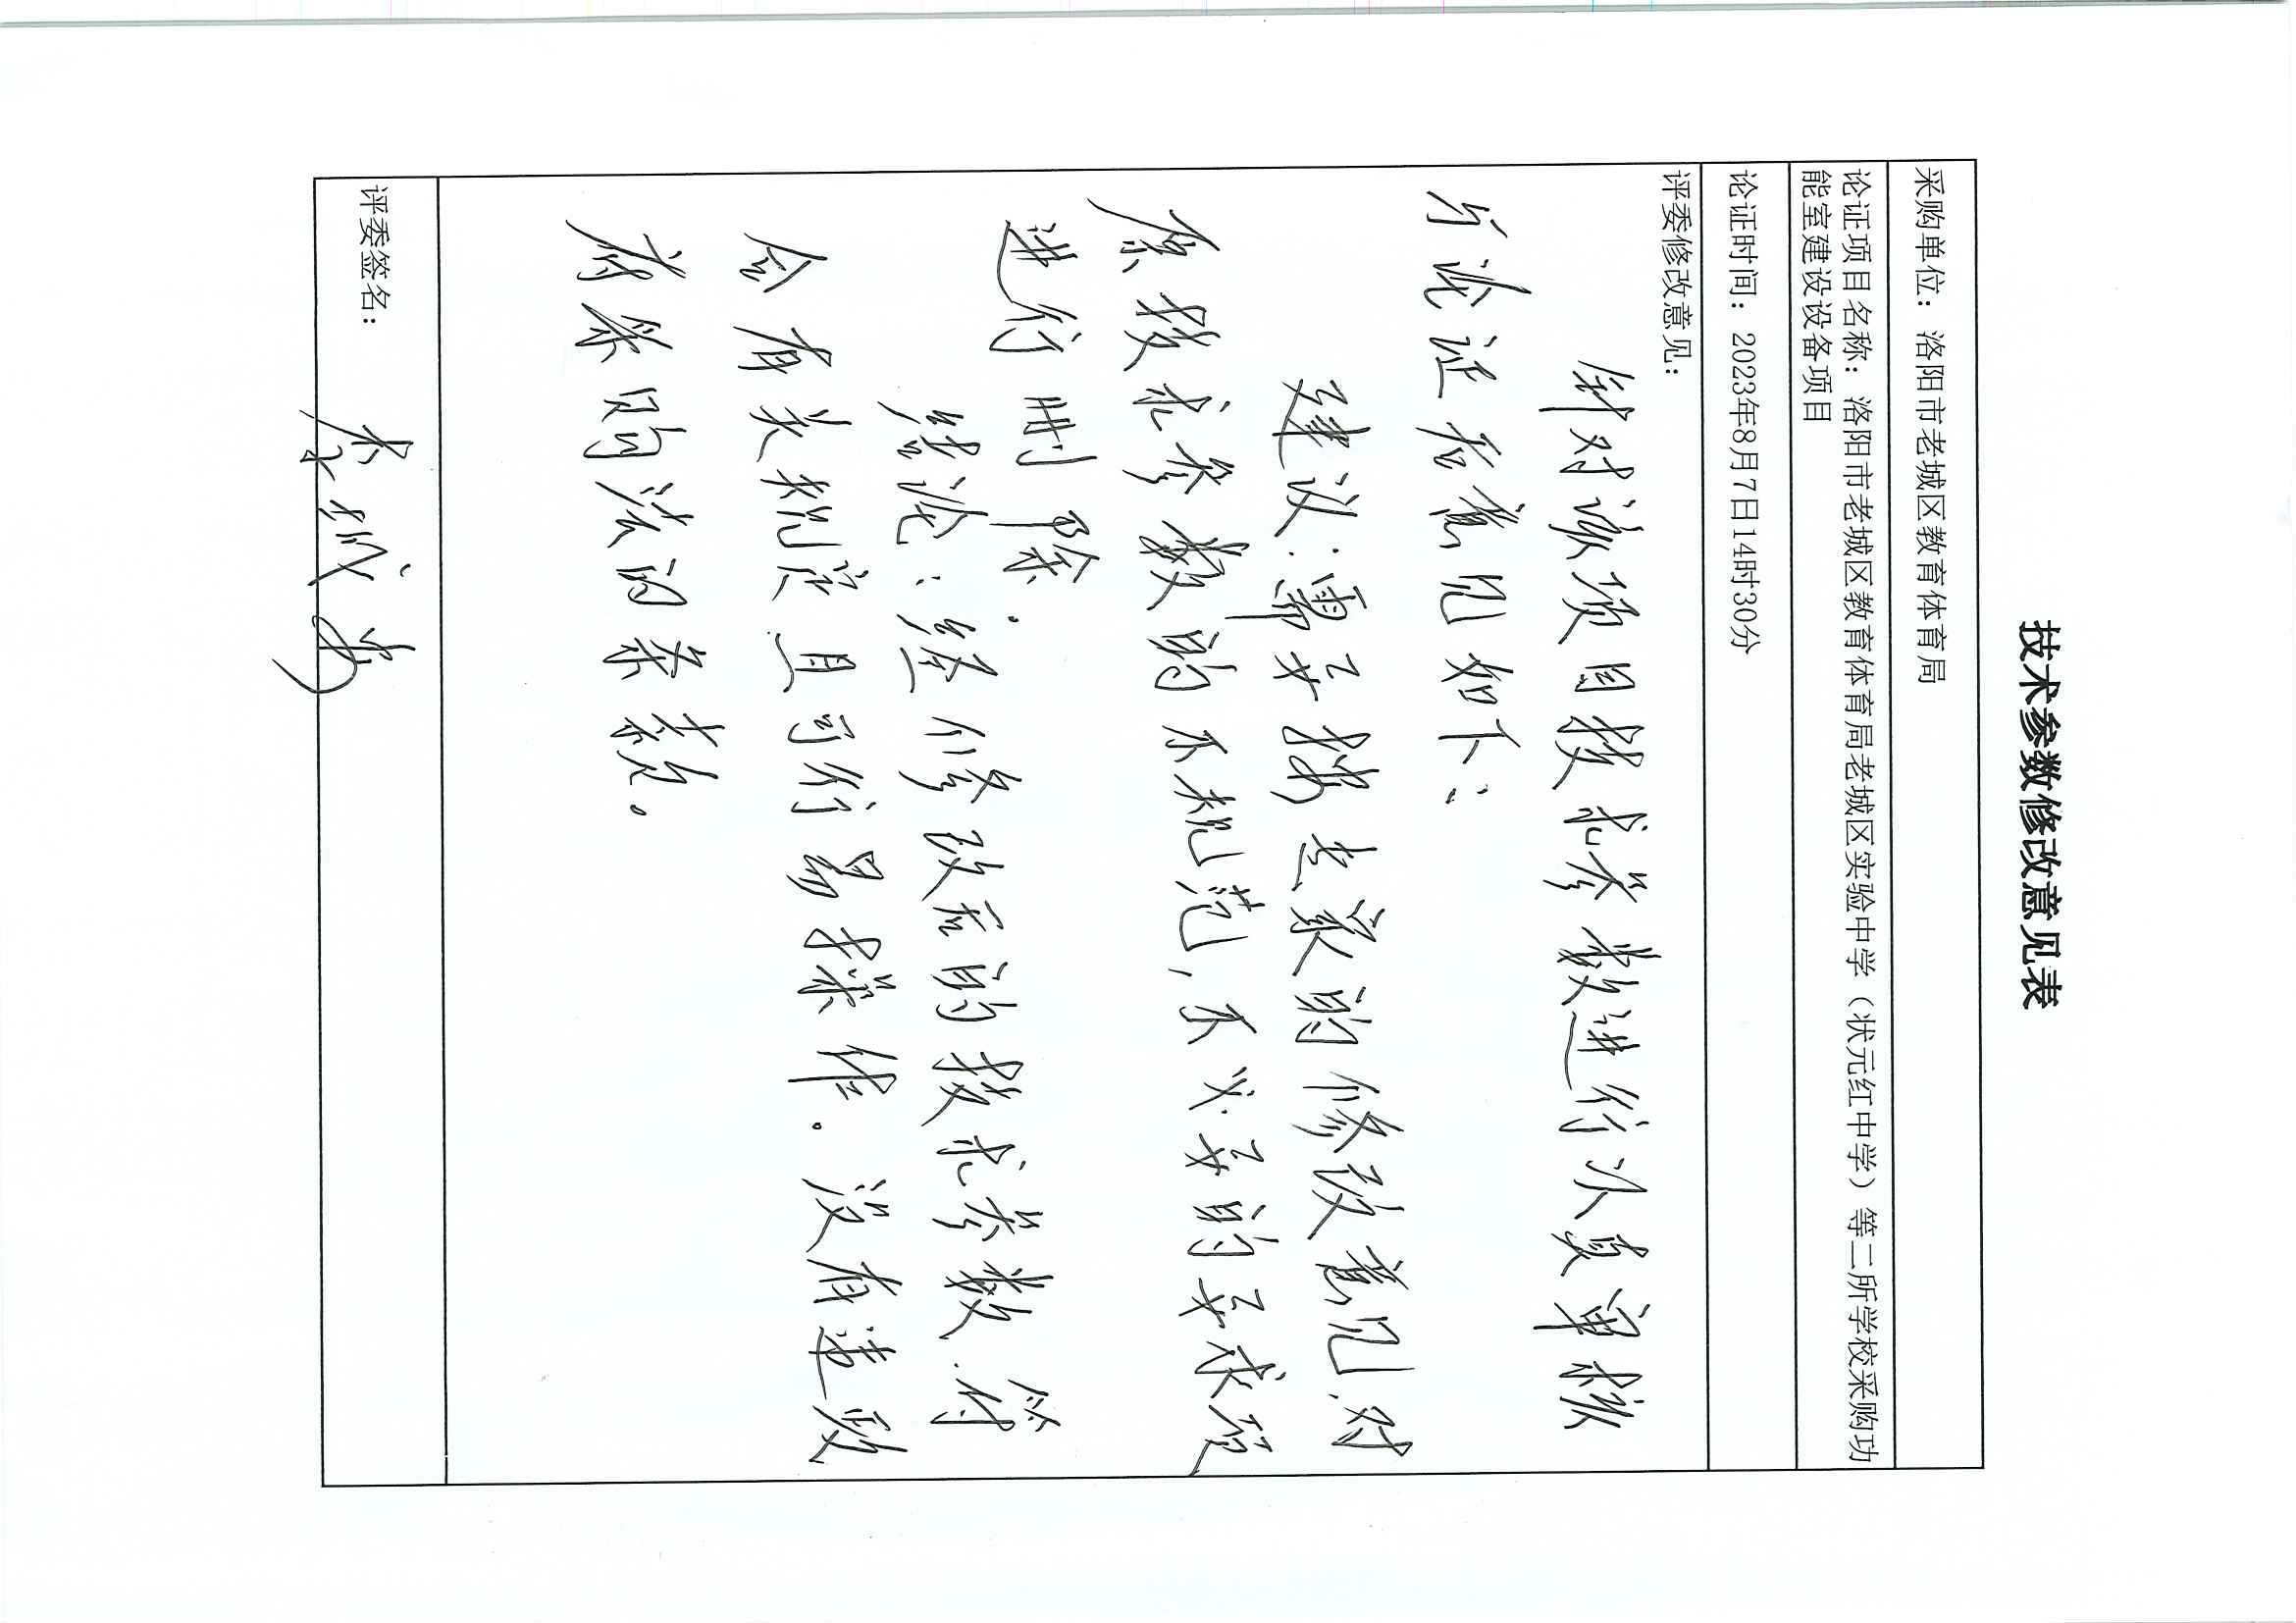 技术参数修改意见表
采购单位：洛阳市老城区教育体育局
论证项目名称：洛阳市老城区教育体育局老城区实验中学（状元红中学）等二所学校采购功
能室建设设备项目
论证时间：2023年8月7日14时30分
评委修改意见：
针对该项目技术参数进行认真审核
与论证后意见如下：
建议：需要按专家的修改意见，对
原技术参数的不规范，不必要的要求须
进行删除．
结论：经修改后的技术参数，符
合有关规定且可行易操作。没有违反
政府采购法的条款。
评委签名：